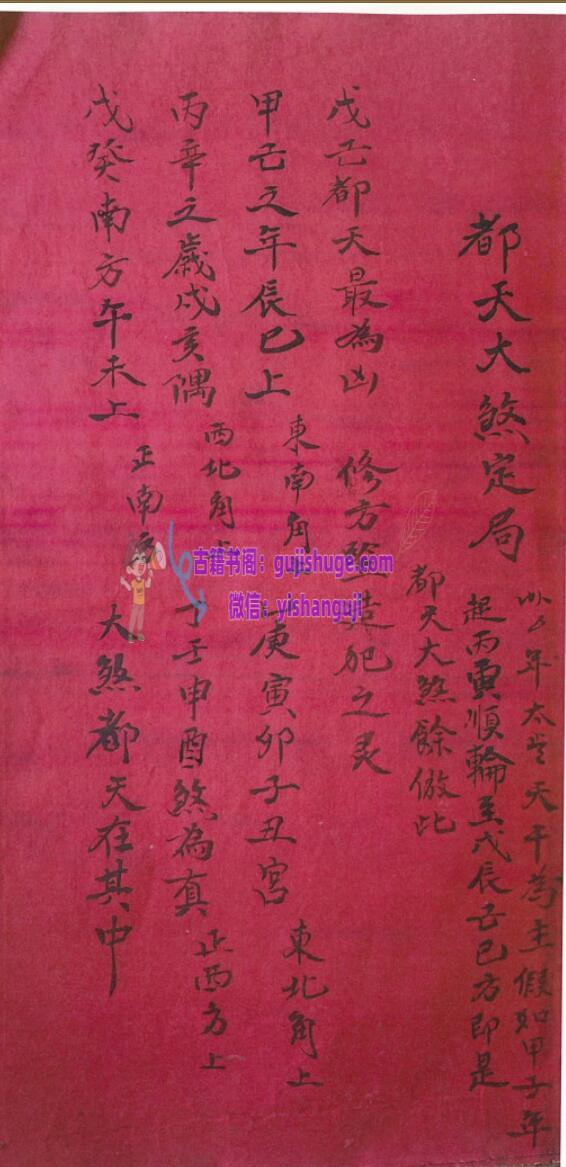 都天大煞定局
以年太岁天干為主假如甲子年
起丙寅順輪至戊辰己巳方即是
都天大煞餘倣此
戊己都天最為凶 修方竪造犯之灵
甲己之年辰巳上 東南角 庚寅卯子丑宮 東北角上
丙辛之歳戌亥隅 西北角上 丁壬申酉煞為真 正西方上
戊癸南方午未上 正南方 大煞都天在其中
古籍书阁：gujishuge.com
微信：yishanguji